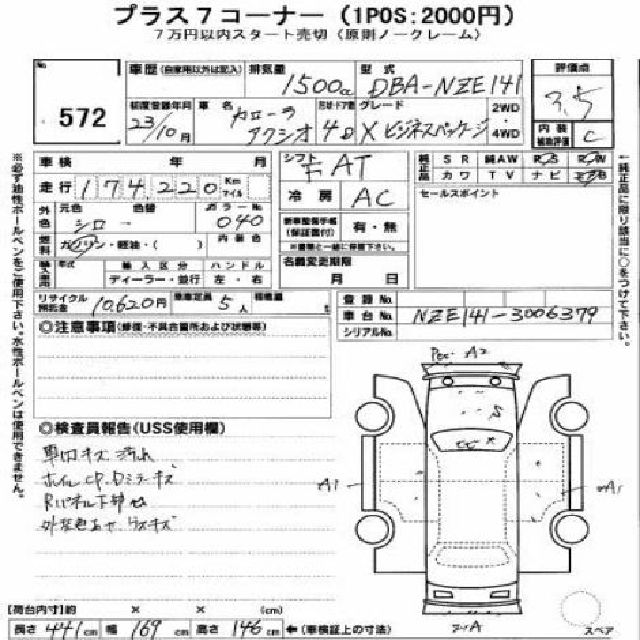 プラス7コーナー(1POS:2000円)
7万円以内スタート売切(原則ノークレーム)
No
572
車歴(自家用以外は記入)
排気量
1500cc
型式
DBA-NZE141
評価点
3.5
初度登録年月
23/10月
車名
カローラ
アクシオ
形状ドア数
4D
グレード
X ビジネスパッケージ
2WD
4WD
内装
補助評価
C
車検 年 月
シフト
F AT
純正品 SR 純AW
カワ TV ナビ
走行
174,220
Km
マイル
冷房
AC
セールスポイント
外色
元色 色替 カラーNo.
シロー
040
新車整備手帳
(保証書付)
有・無
※備欄に保管して下さい。
燃料
ガソリン・軽油・( )
内装色
輸入車用
年式 輸入区分 ハンドル
ディーラー・並行 左・右
名義変更期限
月 日
リサイクル
預託金
10,620円
乗車定員
5人
積載量
t
登録No.
車台No.
NZE141-3006379
シリアルNo.
◎注意事項(修復・不具合箇所および状態等)
◎検査員報告(USS使用欄)
ホイルCP.Dミラーキズ
Rパネル下部
A2
A1
A1
スペア
【荷台内寸】約 × × (cm)
長さ 441cm 幅 169cm 高さ 146cm ←(車検証上の寸法)
※必ず油性ボールペンをご使用下さい。水性ボールペンは使用できません。
←純正品に限り該当に○をつけて下さい。